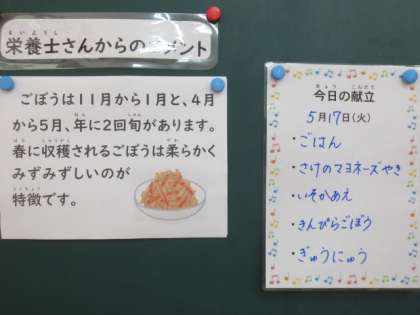 栄養士さんからのコメント
ごぼうは11月から1月と、4月
から5月、年に2回旬があります。
春に収穫されるごぼうは柔らかく
みずみずしいのが
特徴です。
今日の献立
5月17日(火)
・ごはん
・さけのマヨネーズやき
・いそかあえ
・きんぴらごぼう
・ぎゅうにゅう